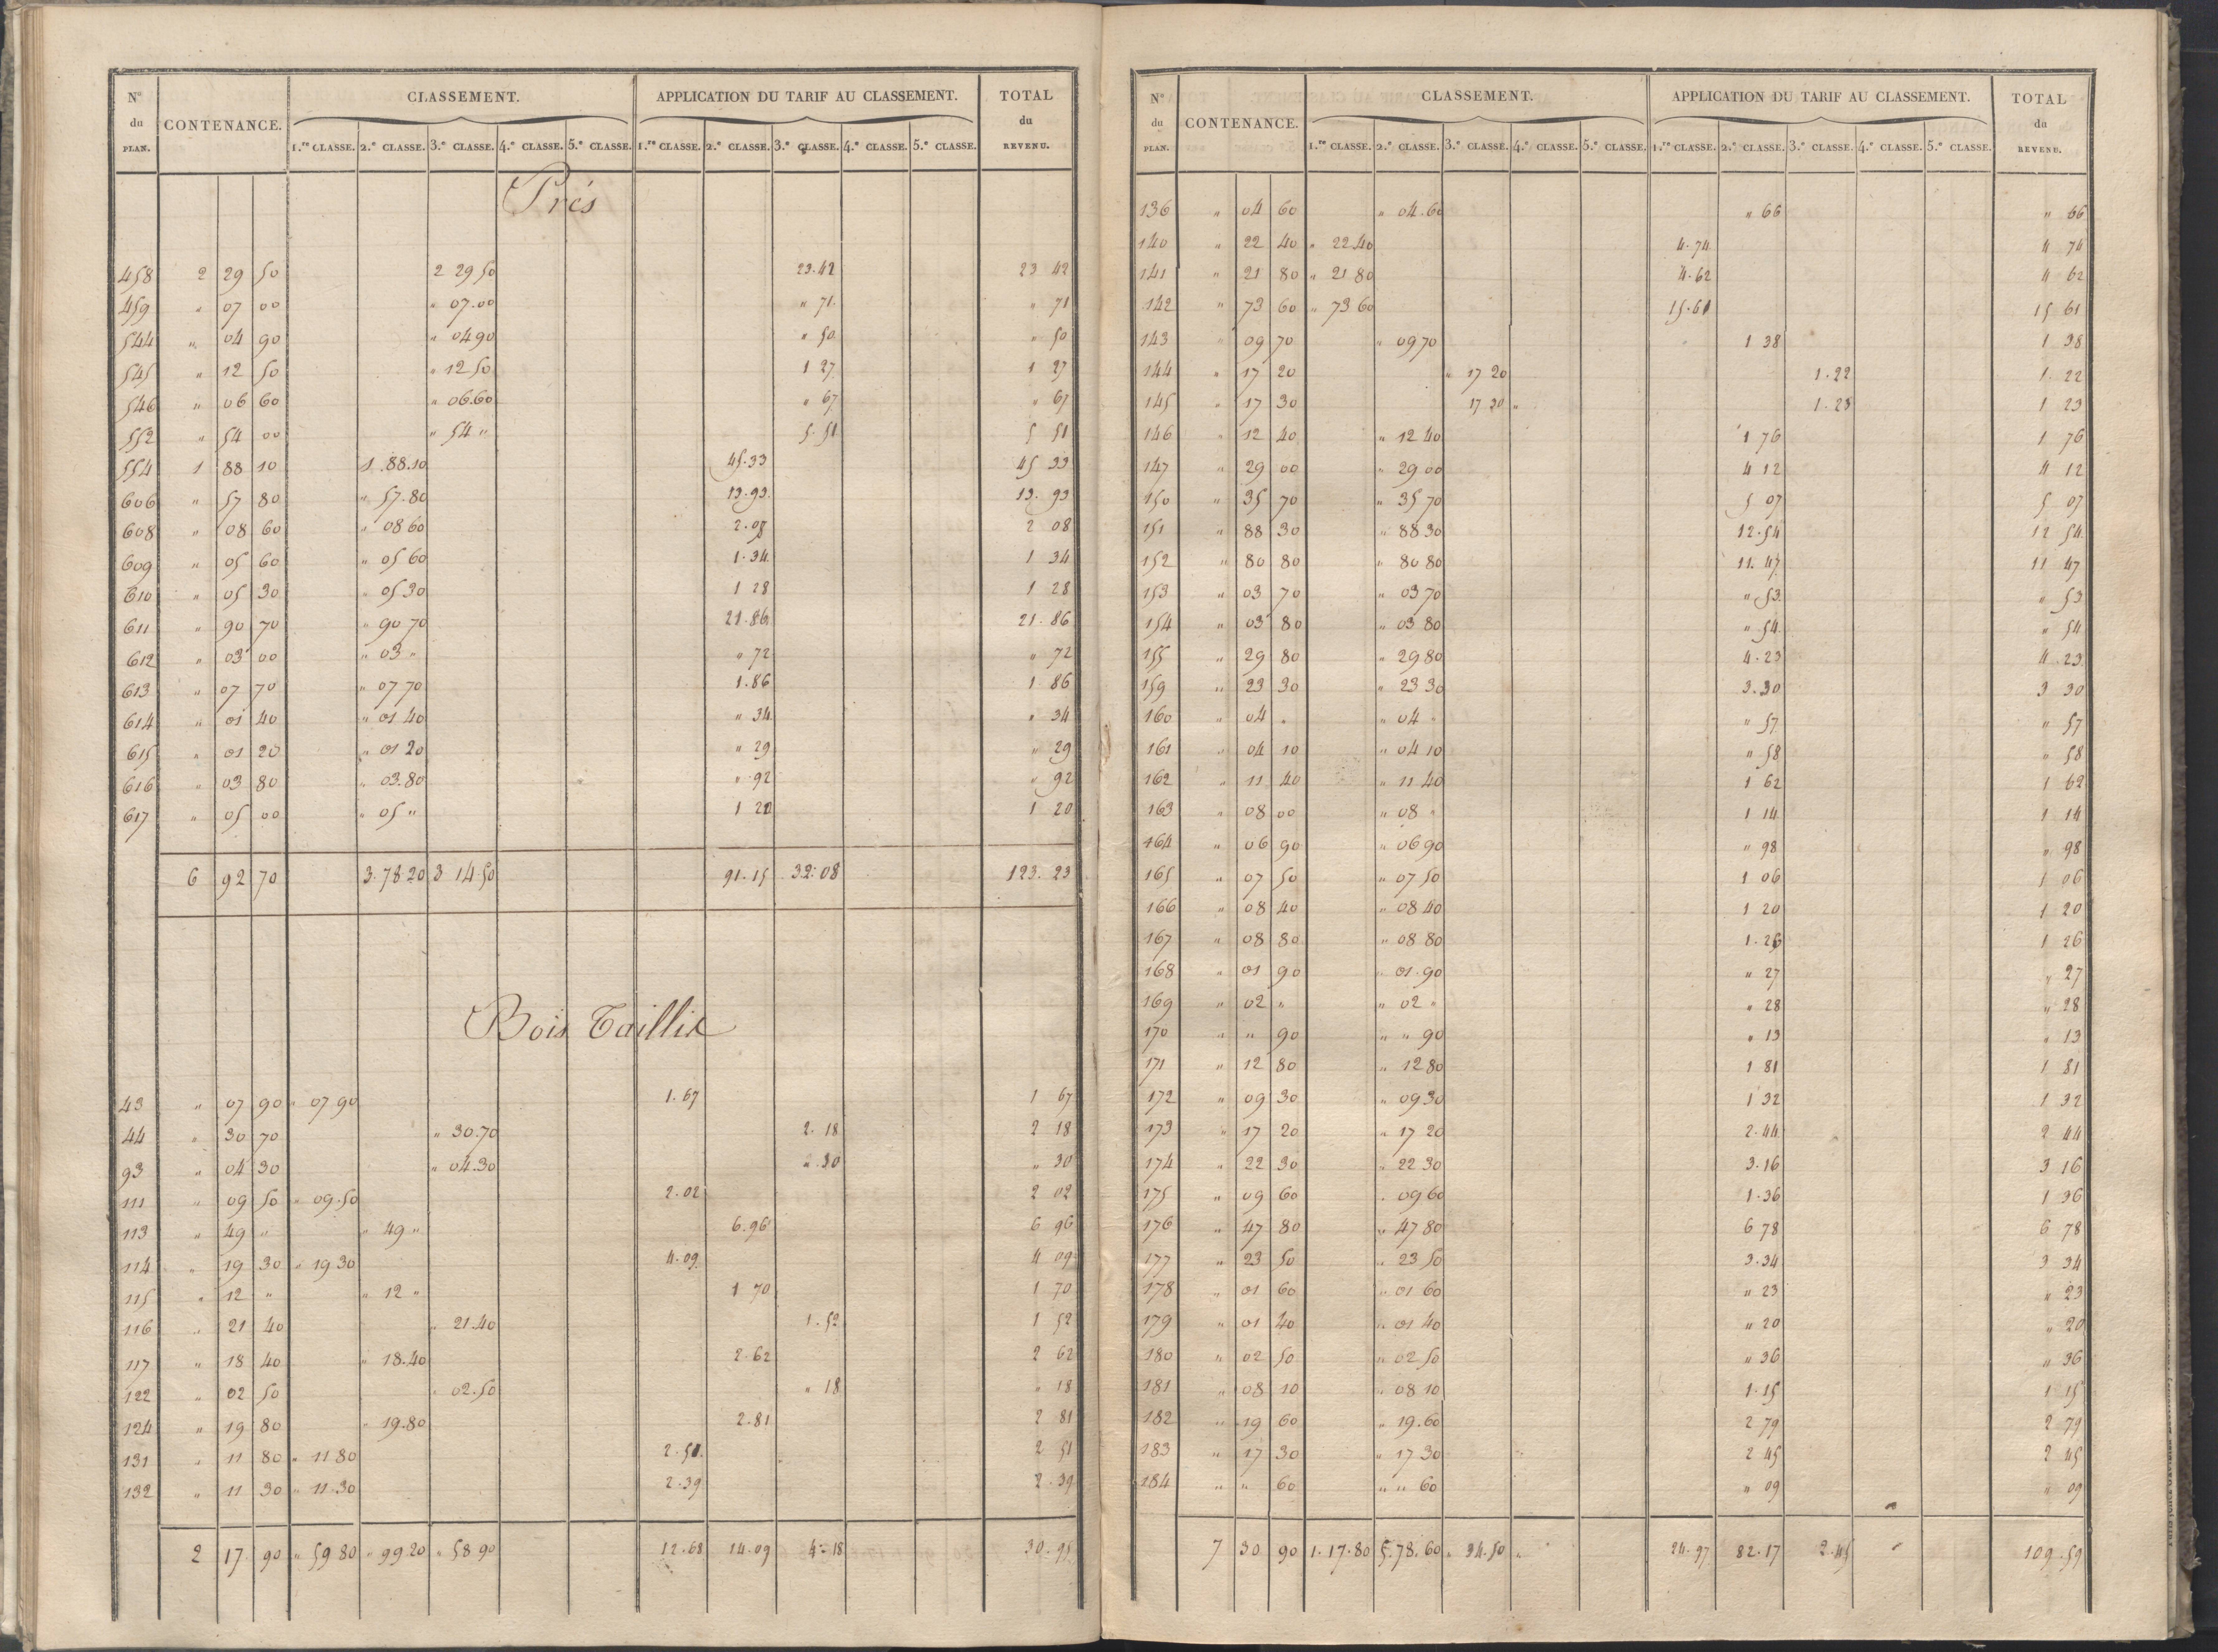 N.º du PLAN. CONTENANCE. CLASSEMENT. APPLICATION DU TARIF AU CLASSEMENT. TOTAL du REVENU.
1.re CLASSE. 2.e CLASSE. 3.e CLASSE. 4.e CLASSE. 5.e CLASSE. 1.re CLASSE. 2.e CLASSE. 3.e CLASSE. 4.e CLASSE. 5.e CLASSE.
Prés
458 2 29 50 2 29 50 23.42 23 42
459 " 07 00 " 07.00 " 71 " 71
544 " 04 90 " 04 90 " 50 " 50
545 " 12 50 " 12 50 1 27 1 27
546 " 06 60 " 06.60 " 67 " 67
552 " 54 00 " 54 " 5.51 5 51
554 1 88 10 1.88.10 45.33 45 33
606 " 57 80 " 57.80 13.93 13.93
608 " 08 60 " 08 60 2.08 2 08
609 " 05 60 " 05 60 1.34 1 34
610 " 05 30 " 05 30 1 28 1 28
611 " 90 70 " 90 70 21.86 21.86
612 " 03 00 " 03 " " 72 " 72
613 " 07 70 " 07 70 1.86 1 86
614 " 01 40 " 01 40 " 34 " 34
615 " 01 20 " 01 20 " 29 " 29
616 " 03 80 " 03.80 " 92 " 92
617 " 05 00 " 05 " 1 20 1 20
6 92 70 3.78 20 3 14.50 91.15 32.08 123.23
Bois Taillis
43 " 07 90 " 07 90 1.67 1 67
44 " 30 70 " 30.70 2.18 2 18
93 " 04 30 " 04.30 " 30 " 30
111 " 09 50 " 09.50 2.02 2 02
113 " 49 " " 49 " 6.96 6 96
114 " 19 30 " 19 30 4.09 4 09
115 " 12 " " 12 " 1 70 1 70
116 " 21 40 " 21.40 1.52 1 52
117 " 18 40 " 18.40 2.62 2 62
122 " 02 50 " 02.50 " 18 " 18
124 " 19 80 " 19.80 2.81 2 81
131 " 11 80 " 11 80 2.51 2 51
132 " 11 30 " 11.30 2.39 2.39
2 17 90 " 59 80 " 99 20 " 58 90 12.68 14.09 4.18 30.95
N.º du PLAN. CONTENANCE. CLASSEMENT. APPLICATION DU TARIF AU CLASSEMENT. TOTAL du REVENU.
1.re CLASSE. 2.e CLASSE. 3.e CLASSE. 4.e CLASSE. 5.e CLASSE. 1.re CLASSE. 2.e CLASSE. 3.e CLASSE. 4.e CLASSE. 5.e CLASSE.
136 " 04 60 " 04.60 " 66 " 66
140 " 22 40 " 22.40 4.74 4 74
141 " 21 80 " 21 80 4.62 4 62
142 " 73 60 " 73 60 15.61 15 61
143 " 09 70 " 09 70 1 38 1 38
144 " 17 20 " 17 20 1.22 1.22
145 " 17 30 17 30 " 1.23 1 23
146 " 12 40 " 12 40 1 76 1 76
147 " 29 00 " 29 00 4 12 4 12
150 " 35 70 " 35 70 5 07 5 07
151 " 88 30 " 88 30 12.54 12 54
152 " 80 80 " 80 80 11.47 11 47
153 " 03 70 " 03 70 " 53 " 53
154 " 03 80 " 03 80 " 54 " 54
155 " 29 80 " 29 80 4.23 4.23
159 " 23 30 " 23 30 3.30 3 30
160 " 04 " " 04 " " 57 " 57
161 " 04 10 " 04 10 " 58 " 58
162 " 11 40 " 11 40 1 62 1 62
163 " 08 00 " 08 " 1 14 1 14
164 " 06 90 " 06 90 " 98 " 98
165 " 07 50 " 07 50 1 06 1 06
166 " 08 40 " 08 40 1 20 1 20
167 " 08 80 " 08 80 1.26 1 26
168 " 01 90 " 01.90 " 27 " 27
169 " 02 " " 02 " " 28 " 28
170 " " 90 " " 90 " 13 " 13
171 " 12 80 " 12 80 1 81 1 81
172 " 09 30 " 09 30 1 32 1 32
173 " 17 20 " 17 20 2.44 2 44
174 " 22 30 " 22 30 3.16 3 16
175 " 09 60 " 09 60 1.36 1 36
176 " 47 80 " 47 80 6 78 6 78
177 " 23 50 " 23 50 3.34 3 34
178 " 01 60 " 01 60 " 23 " 23
179 " 01 40 " 01 40 " 20 " 20
180 " 02 50 " 02 50 " 36 " 36
181 " 08 10 " 08 10 1.15 1 15
182 " 19 60 " 19.60 2 79 2 79
183 " 17 30 " 17 30 2 45 2 45
184 " " 60 " " 60 " 09 " 09
7 30 90 1.17.80 5.78.60 " 34.50 " 24.97 82.17 2.45 " 109.59